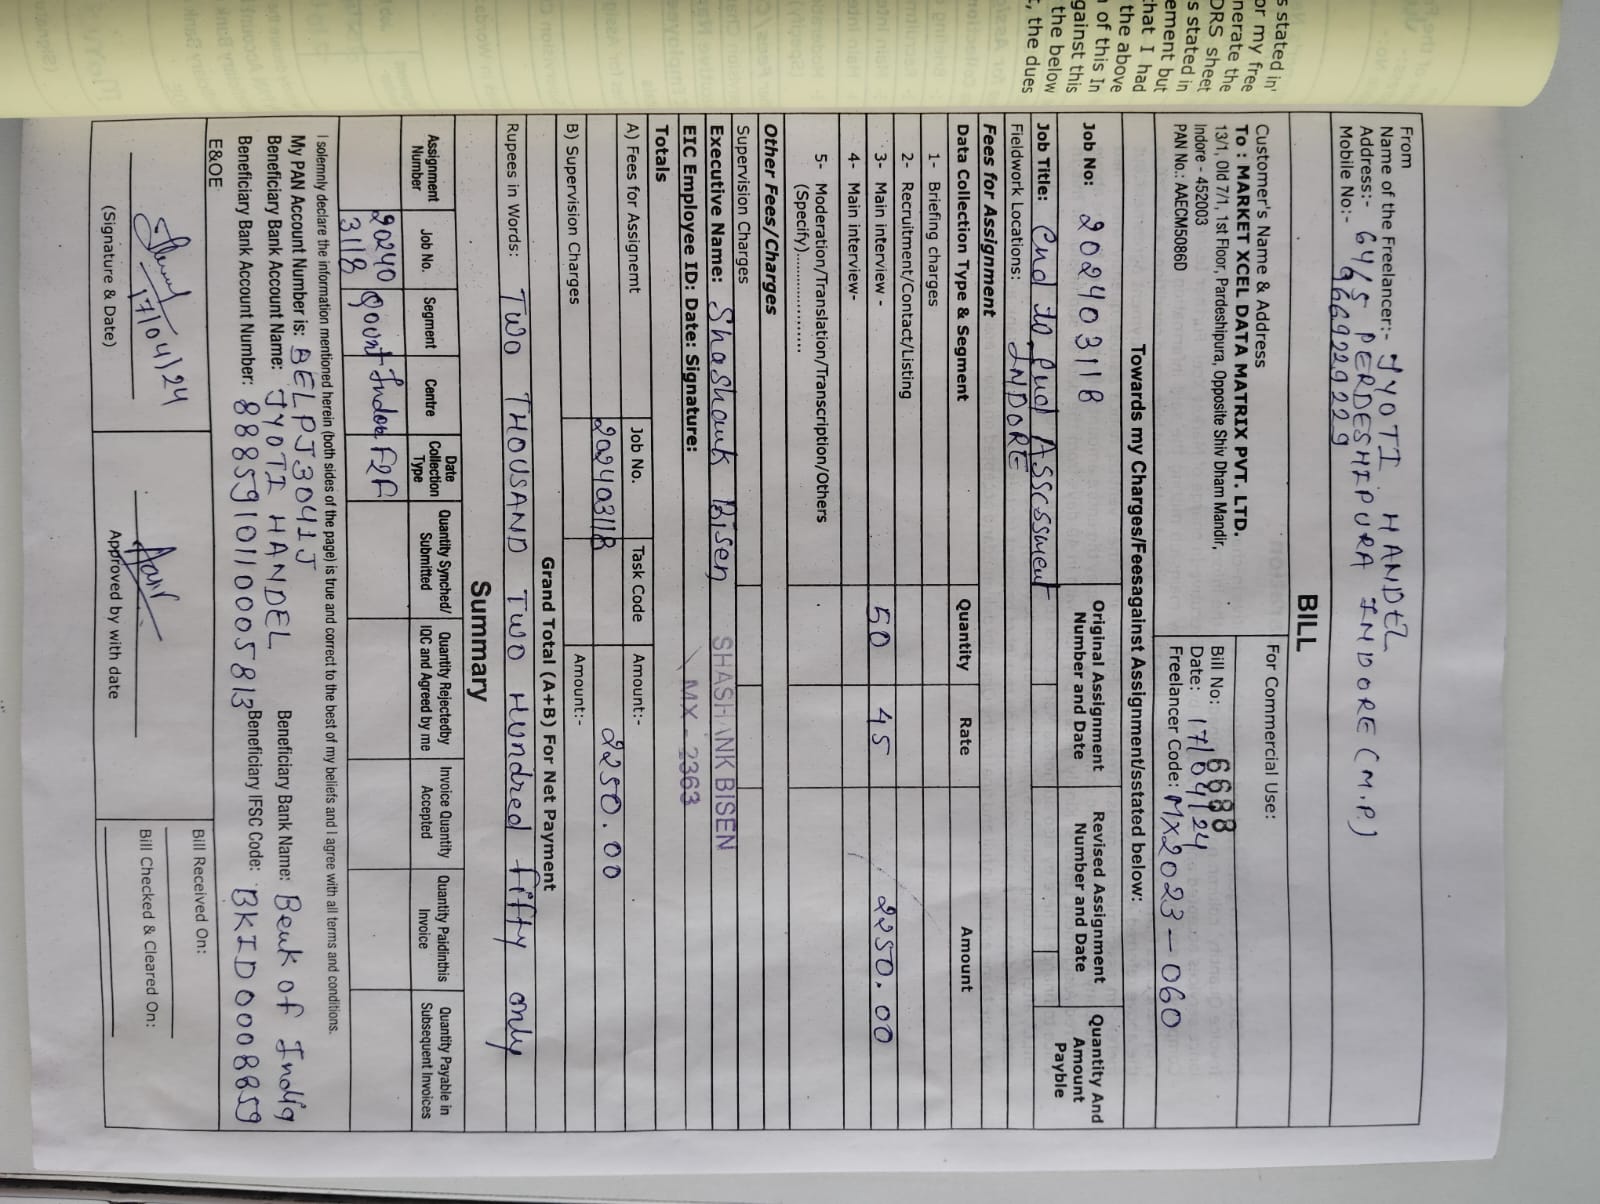 s stated in'
or my free
nerate the
DRS sheet
s stated in
ement but
that I had
the above
of this In
gainst this
the below
, the dues
From
Name of the Freelancer:- JYOTI HANDEL
Address:- 64/5 PERDESHIPURA INDORE (M.P.)
Mobile No:- 9669229229
BILL
Customer's Name & Address
To : MARKET XCEL DATA MATRIX PVT. LTD.
13/1, Old 7/1, 1st Floor, Pardeshipura, Opposite Shiv Dham Mandir,
Indore - 452003
PAN No.: AAECM5086D
For Commercial Use:
Bill No: 6688
Date: 17/04/24
Freelancer Code: MX2023-060
Towards my Charges/Feesagainst Assignment/sstated below:
Job No: 202403118
Original Assignment Number and Date
Revised Assignment Number and Date
Quantity And Amount Payble
Job Title: End to End Assessment
Fieldwork Locations: INDORE
Fees for Assignment
Data Collection Type & Segment Quantity Rate Amount
1- Briefing charges
2- Recruitment/Contact/Listing
3- Main interview - 50 45 2250.00
4- Main interview-
5- Moderation/Translation/Transcription/Others
(Specify)...................
Other Fees/Charges
Supervision Charges
Executive Name: Shashank Bisen SHASHANK BISEN
EIC Employee ID: Date: Signature: MX - 2363
Totals
A) Fees for Assignemt Job No. Task Code Amount:-
202403118 2250.00
B) Supervision Charges Amount:-
Grand Total (A+B) For Net Payment
Rupees in Words: TWO THOUSAND TWO Hundred fifty only
Summary
Assignment Number Job No. Segment Centre Data Collection Type Quantity Synched/ Submitted Quantity Rejectedby IQC and Agreed by me Invoice Quantity Accepted Quantity Paidinthis Invoice Quantity Payable in Subsequent Invoices
20240 3118 Govt Indore F2F
I solemnly declare the information mentioned herein (both sides of the page) is true and correct to the best of my beliefs and I agree with all terms and conditions.
My PAN Account Number is: BELPJ3041J
Beneficiary Bank Account Name: JYOTI HANDEL Beneficiary Bank Name: Bank of India
Beneficiary Bank Account Number: 885910110005813 Beneficiary IFSC Code: BKID0008859
E&OE
17/04/24
(Signature & Date)
Approved by with date
Bill Received On:
Bill Checked & Cleared On: